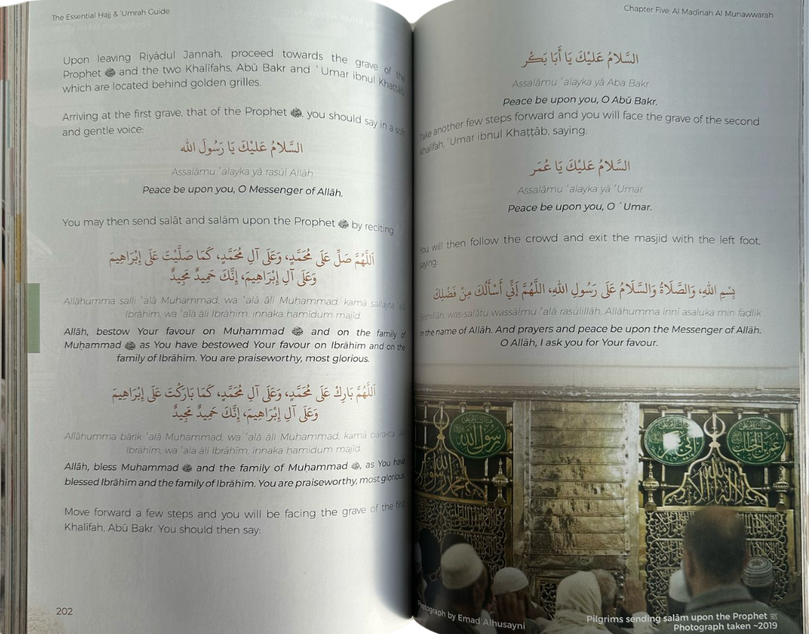 The Essential Hajj & ʿUmrah Guide
Upon leaving Riyāḍul Jannah, proceed towards the grave of the
Prophet ﷺ and the two Khalīfahs, Abū Bakr and ʿUmar ibnul Khaṭṭāb
which are located behind golden grilles.
Arriving at the first grave, that of the Prophet ﷺ, you should say in a soft
and gentle voice:
السَّلَامُ عَلَيْكَ يَا رَسُولَ الله
Assalāmu ʿalayka yā rasūl Allāh
Peace be upon you, O Messenger of Allāh.
You may then send salāt and salām upon the Prophet ﷺ by reciting
اَللَّهُمَّ صَلِّ عَلَى مُحَمَّدٍ، وَعَلَى آلِ مُحَمَّدٍ، كَمَا صَلَّيْتَ عَلَى إِبْرَاهِيمَ
وَعَلَى آلِ إِبْرَاهِيمَ، إِنَّكَ حَمِيدٌ مَجِيدٌ
Allāhumma salli ʿalā Muhammad, wa ʿalā āli Muhammad, kamā sallayta ʿalā
Ibrāhīm, wa ʿalā āli Ibrāhīm, innaka hamīdum majīd.
Allāh, bestow Your favour on Muhammad ﷺ and on the family of
Muḥammad ﷺ as You have bestowed Your favour on Ibrāhīm and on the
family of Ibrāhīm. You are praiseworthy, most glorious.
اَللَّهُمَّ بَارِكْ عَلَى مُحَمَّدٍ، وَعَلَى آلِ مُحَمَّدٍ، كَمَا بَارَكْتَ عَلَى إِبْرَاهِيمَ
وَعَلَى آلِ إِبْرَاهِيمَ، إِنَّكَ حَمِيدٌ مَجِيدٌ
Allāhumma bārik ʿalā Muhammad, wa ʿalā āli Muhammad, kamā bārakta ʿalā
Ibrāhīm, wa ʿalā āli Ibrāhīm, innaka hamīdum majīd.
Allāh, bless Muhammad ﷺ and the family of Muhammad ﷺ, as You have
blessed Ibrāhīm and the family of Ibrāhīm. You are praiseworthy, most glorious.
Move forward a few steps and you will be facing the grave of the first
Khalīfah, Abū Bakr. You should then say:
202
Chapter Five: Al Madīnah Al Munawwarah
السَّلَامُ عَلَيْكَ يَا أَبَا بَكْر
Assalāmu ʿalayka yā Aba Bakr
Peace be upon you, O Abū Bakr.
Take another few steps forward and you will face the grave of the second
Khalīfah, ʿUmar ibnul Khaṭṭāb, saying.
السَّلَامُ عَلَيْكَ يَا عُمَر
Assalāmu ʿalayka yā ʿUmar
Peace be upon you, O ʿUmar.
You will then follow the crowd and exit the masjid with the left foot,
saying.
بِسْمِ اللهِ، وَالصَّلَاةُ وَالسَّلَامُ عَلَى رَسُولِ اللهِ، اللَّهُمَّ إِنِّي أَسْأَلُكَ مِنْ فَضْلِكَ
Bismillāh, was-salātu wassalāmu ʿalā rasūlillāh. Allāhumma innī asaluka min fadlik
In the name of Allāh. And prayers and peace be upon the Messenger of Allāh.
O Allāh, I ask you for Your favour.
رسول الله
Photograph by Emad Alhusayni
Pilgrims sending salām upon the Prophet ﷺ
Photograph taken ~2019